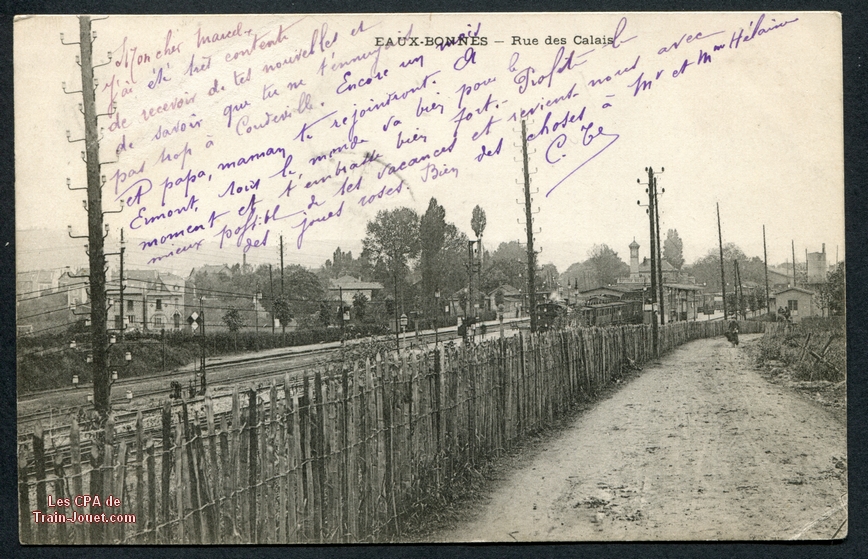 EAUX-BONNES – Rue des Calais
Mon cher Marcel,
j'ai été très content
de recevoir de tes nouvelles et
de savoir que tu ne t'ennuyait
pas trop à Coudeville. Encore un mois
et papa, maman te rejoindront. A
Ermont, tout le monde va bien pour le
moment et t'embrasse bien fort. Profite le
mieux possible de tes vacances et revient nous avec
des joues roses. Bien des choses à Mr et Mme Hélaine
Les CPA de
Train-Jouet.com